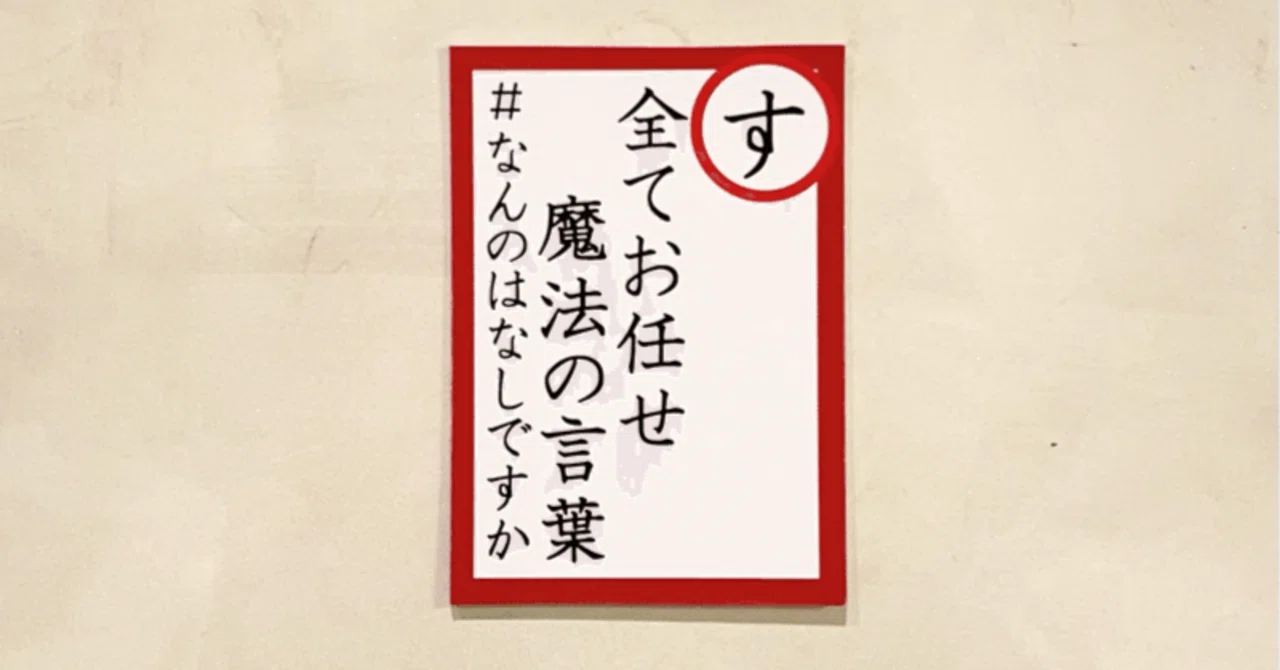 す
全てお任せ
魔法の言葉
#なんのはなしですか